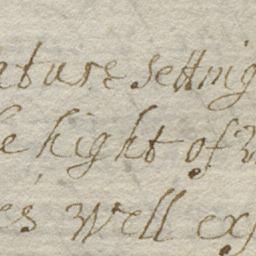 ature setting
e hight of W
es Well exp